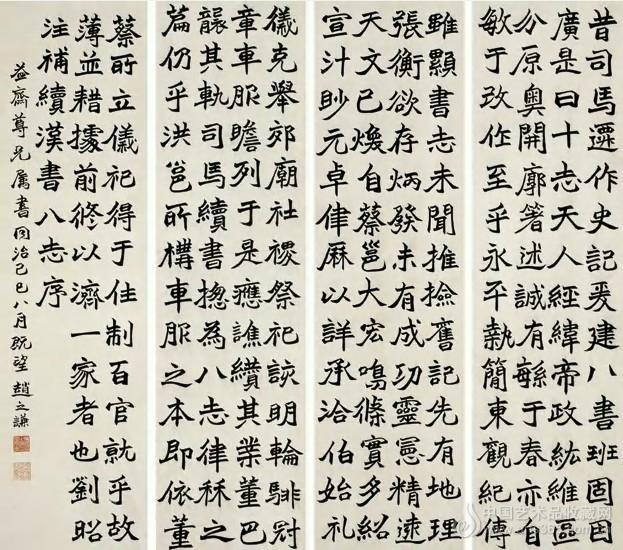 昔司馬遷作史記爰建八書班固因
廣是曰十志天人經緯帝政紘維區
分原奧開廓箸述誠有繇于春亦自
敏于改作至乎永平執簡東觀紀傳
雖顯書志未聞推撿舊記先有地理
張衡欲存炳發未有成功靈憲精遠
天文已煥自蔡邕大宏鳴條實多紹
宣汁眇元卓律厤以詳承洽伯始礼
儀克舉郊廟社禝祭祀該明輪騑冠
章車服瞻列于是應譙纘其業董巴
襲其軌司馬續書揔為八志律秝之
篇仍乎洪邕所構車服之本即依董
蔡所立儀祀得于住制百官就乎故
薄並耤據前修以濟一家者也劉昭
注補續漢書八志序
益齋尊兄屬書同治己巳八月既望 趙之謙
中国艺术品收藏网